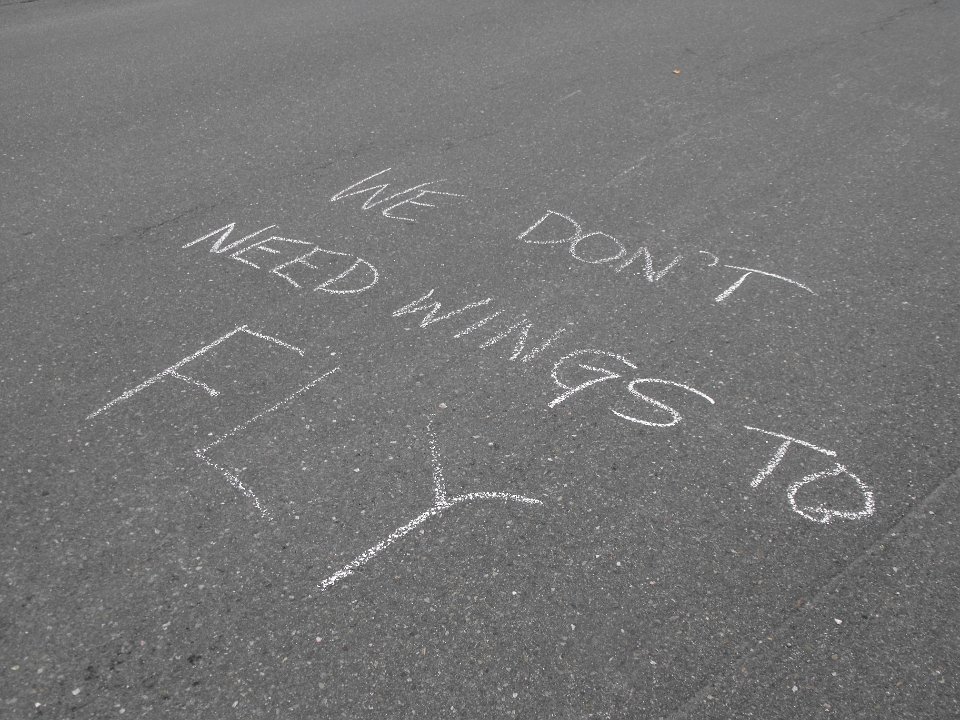 WE DON'T
NEED WINGS TO
FLY